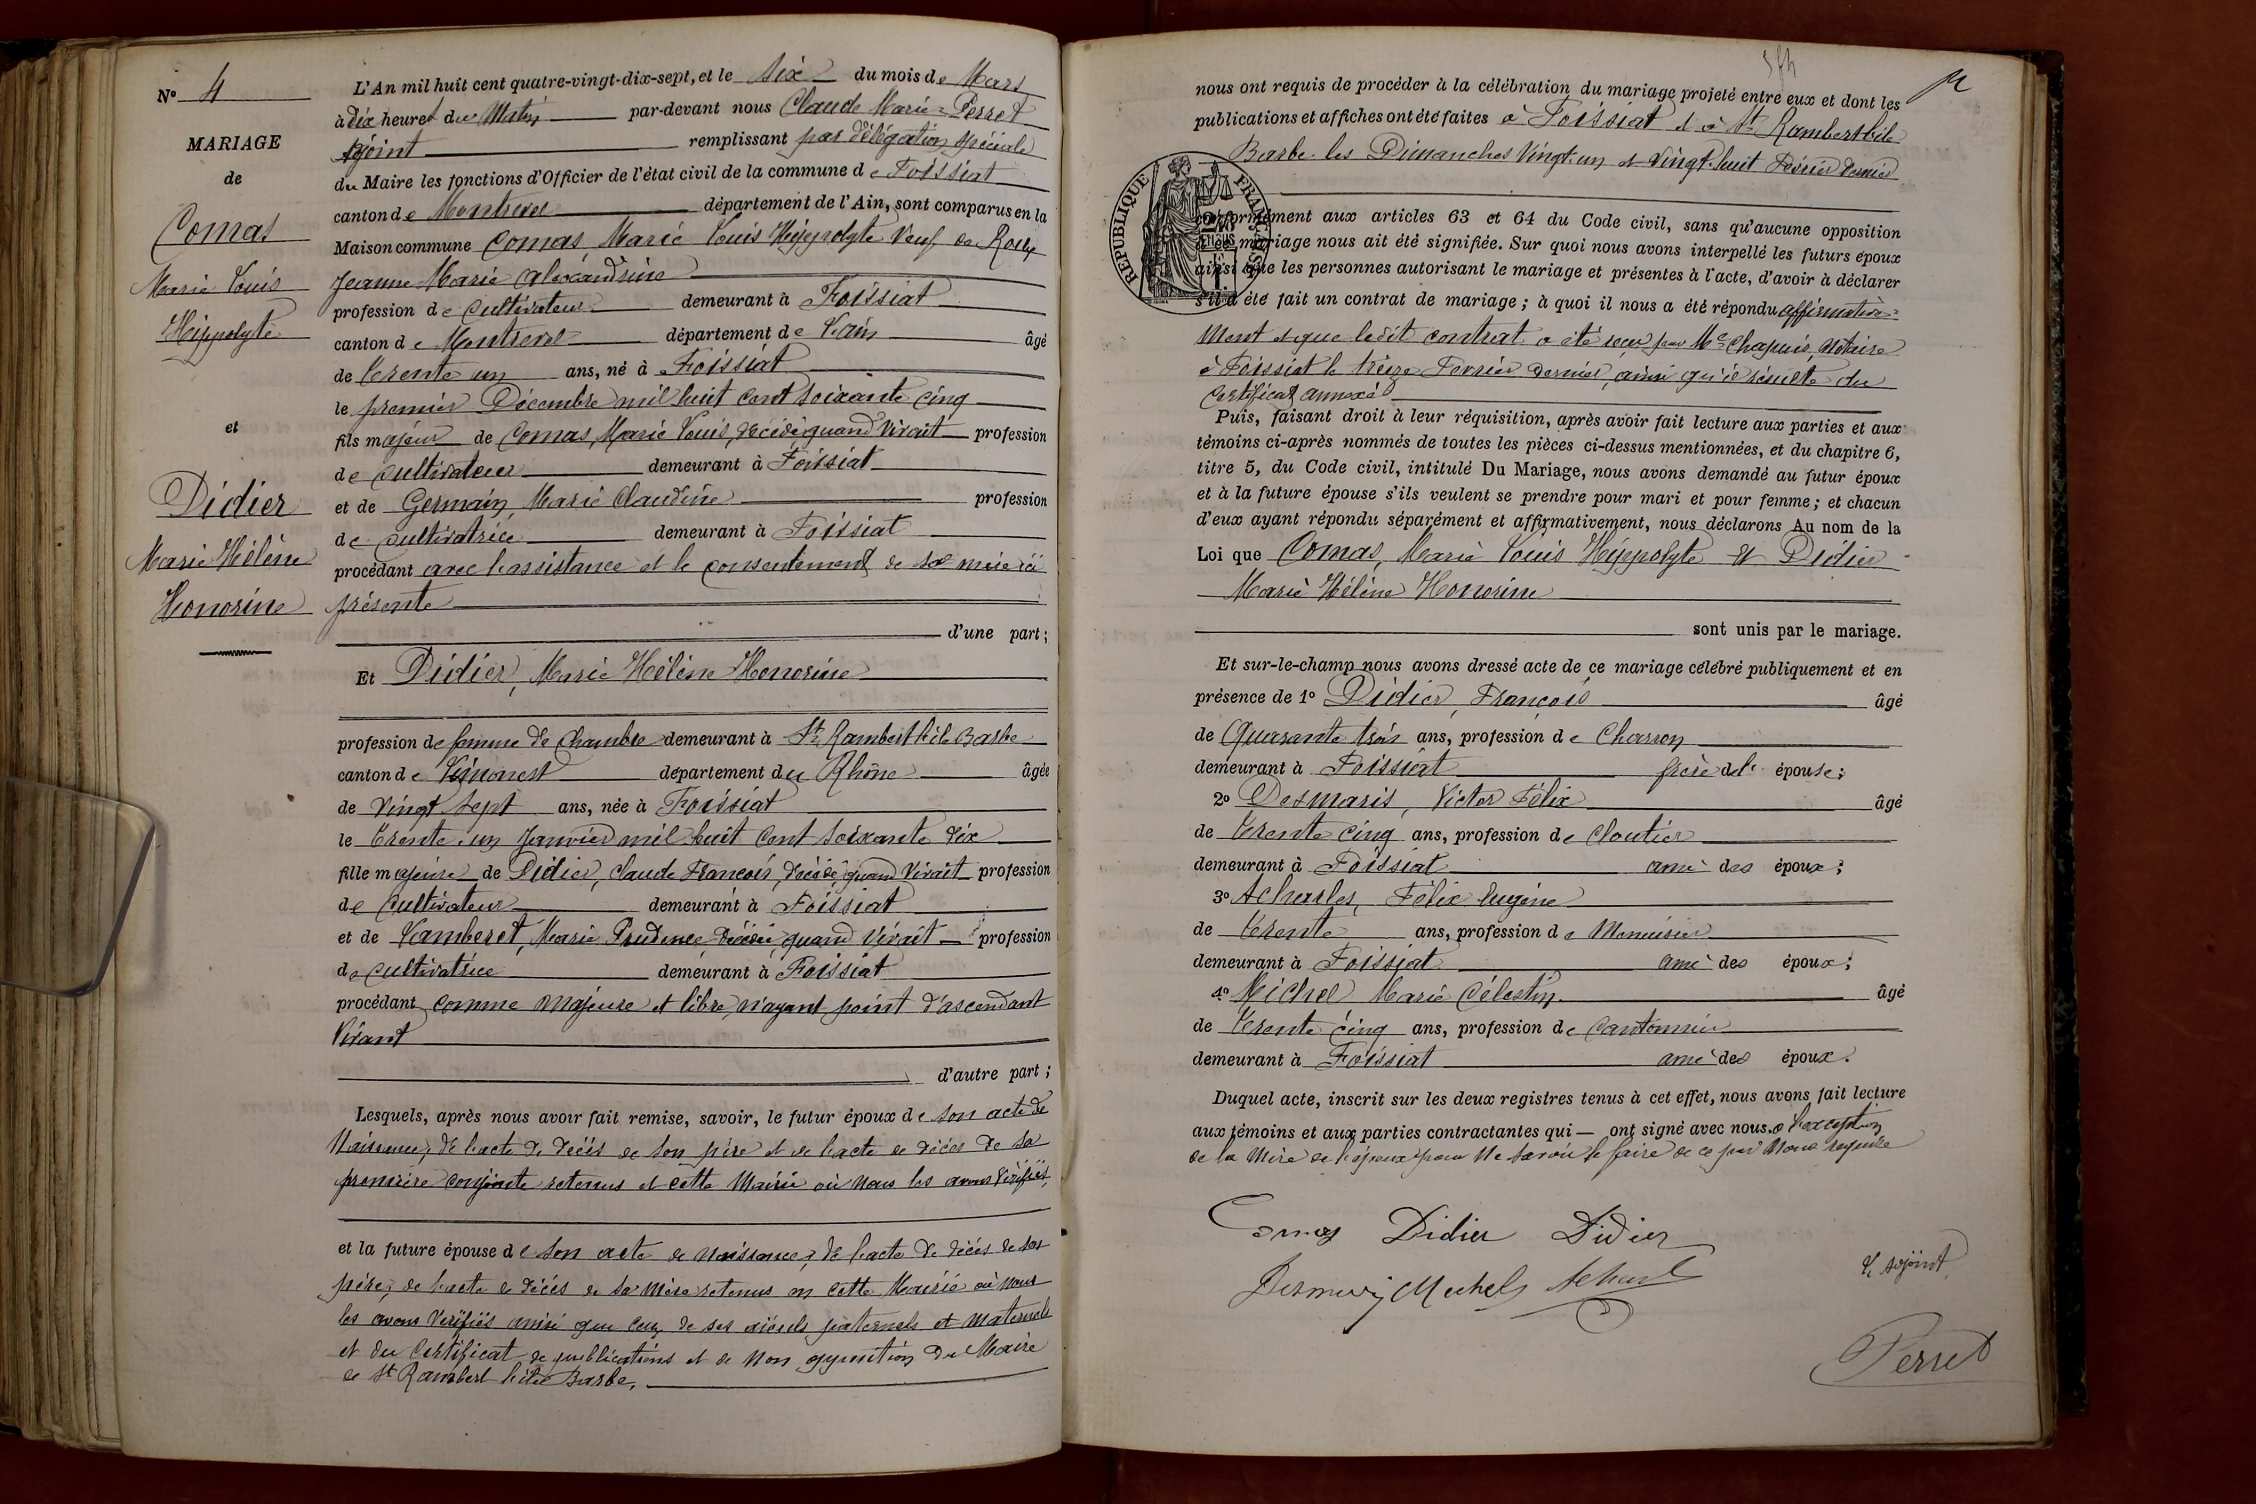 N° 4
MARIAGE
de
Comas
Marie Louis
Hippolyte
et
Didier
Marie Hélène
Honorine
L'An mil huit cent quatre-vingt-dix-sept, et le Six du mois de Mars
à dix heures du Matin par-devant nous Claude Marie Perret
Adjoint remplissant par délégation spéciale
du Maire les fonctions d'Officier de l'état civil de la commune de Foissiat
canton de Montrevel département de l'Ain, sont comparus en la
Maison commune Comas Marie Louis Hippolyte Veuf de Roux
Jeanne Marie Alexandrine
profession de Cultivateur demeurant à Foissiat
canton de Montrevel département de l'ain âgé
de trente un ans, né à Foissiat
le premier Décembre mil huit cent soixante cinq
fils majeur de Comas, Marie Louis, décédé, quand Vivait profession
de Cultivateur demeurant à Foissiat
et de Germain, Marie Claudine profession
de Cultivatrice demeurant à Foissiat
procédant avec l'assistance et le consentement de sa mère ici
présente
d'une part;
Et Didier, Marie Hélène Honorine
profession de femme de Chambre demeurant à St Rambert l'ile Barbe
canton de Limonest département du Rhône âgée
de Vingt Sept ans, née à Foissiat
le trente un Janvier mil huit Cent soixante dix
fille majeure de Didier, Claude François, décédé, quand Vivait profession
de Cultivateur demeurant à Foissiat
et de Vamberet, Marie Prudence décédée quand Vivait profession
de Cultivatrice demeurant à Foissiat
procédant comme majeure et libre n'ayant point d'ascendant
Vivant
d'autre part;
Lesquels, après nous avoir fait remise, savoir, le futur époux de son acte de
Naissance, de l'acte de décès de son père et de l'acte de décès de sa
première conjointe retenus et cette Mairie où nous les avons Vérifiés,
et la future épouse de son acte de naissance, de l'acte de décès de son
père, de l'acte de décès de sa Mère retenus en cette Mairie où nous
les avons Vérifiés ainsi que ceux de ses aïeuls paternels et maternels
et du Certificat de publications et de Non opposition du Maire
de St Rambert l'ile Barbe.
nous ont requis de procéder à la célébration du mariage projeté entre eux et dont les
publications et affiches ont été faites à Foissiat et à St Rambert l'ile
Barbe les Dimanches Vingt un et Vingt huit Février dernier
RÉPUBLIQUE FRANÇAISE
conformément aux articles 63 et 64 du Code civil, sans qu'aucune opposition
à ce mariage nous ait été signifiée. Sur quoi nous avons interpellé les futurs époux
ainsi que les personnes autorisant le mariage et présentes à l'acte, d'avoir à déclarer
s'il a été fait un contrat de mariage; à quoi il nous a été répondu affirmative-
ment et que ledit contrat a été reçu par Me Chapuis, Notaire
à Foissiat le treize Fevrier dernier, ainsi qu'il résulte du
Certificat annexé
Puis, faisant droit à leur réquisition, après avoir fait lecture aux parties et aux
témoins ci-après nommés de toutes les pièces ci-dessus mentionnées, et du chapitre 6,
titre 5, du Code civil, intitulé Du Mariage, nous avons demandé au futur époux
et à la future épouse s'ils veulent se prendre pour mari et pour femme; et chacun
d'eux ayant répondu séparément et affirmativement, nous déclarons Au nom de la
Loi que Comas, Marie Louis Hippolyte et Didier
Marie Hélène Honorine
sont unis par le mariage.
Et sur-le-champ nous avons dressé acte de ce mariage célébré publiquement et en
présence de 1° Didier, François âgé
de Quarante trois ans, profession de Charron
demeurant à Foissiat frère de l' épouse;
2° Desmaris, Victor Félix âgé
de Trente cinq ans, profession de Cloutier
demeurant à Foissiat ami des époux;
3° Acharles, Félix Eugène
de Trente ans, profession de Menuisier
demeurant à Foissiat ami des époux;
4° Michel Marie Célestin âgé
de Trente cinq ans, profession de Cantonnier
demeurant à Foissiat ami des époux.
Duquel acte, inscrit sur les deux registres tenus à cet effet, nous avons fait lecture
aux témoins et aux parties contractantes qui — ont signé avec nous à l'exception
de la Mère de l'époux pour Ne savoir le faire de ce par Nous requise
Comas Didier Didier
Desmaris Michel Acharl
L'adjoint
Perret